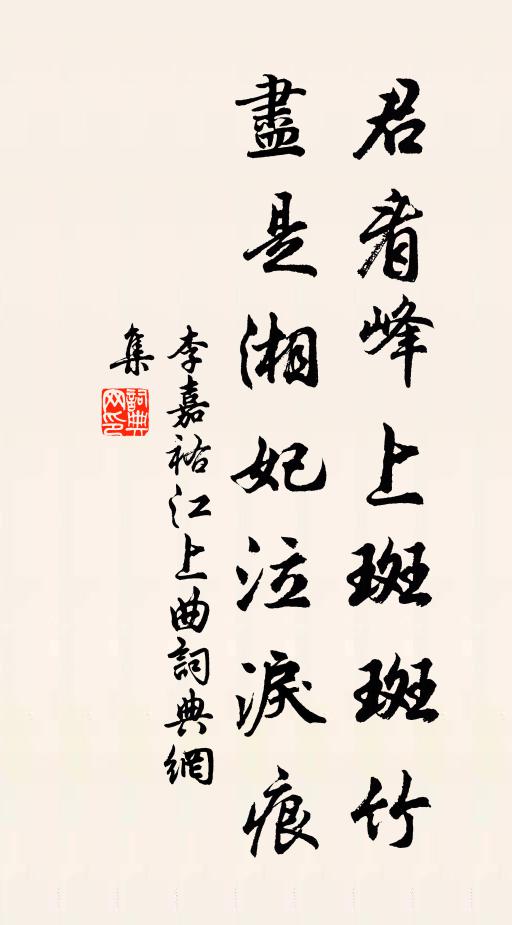 君看峰上斑斑竹
盡是湘妃泣淚痕
李嘉祐江上曲詞典網
集
詞典
网印